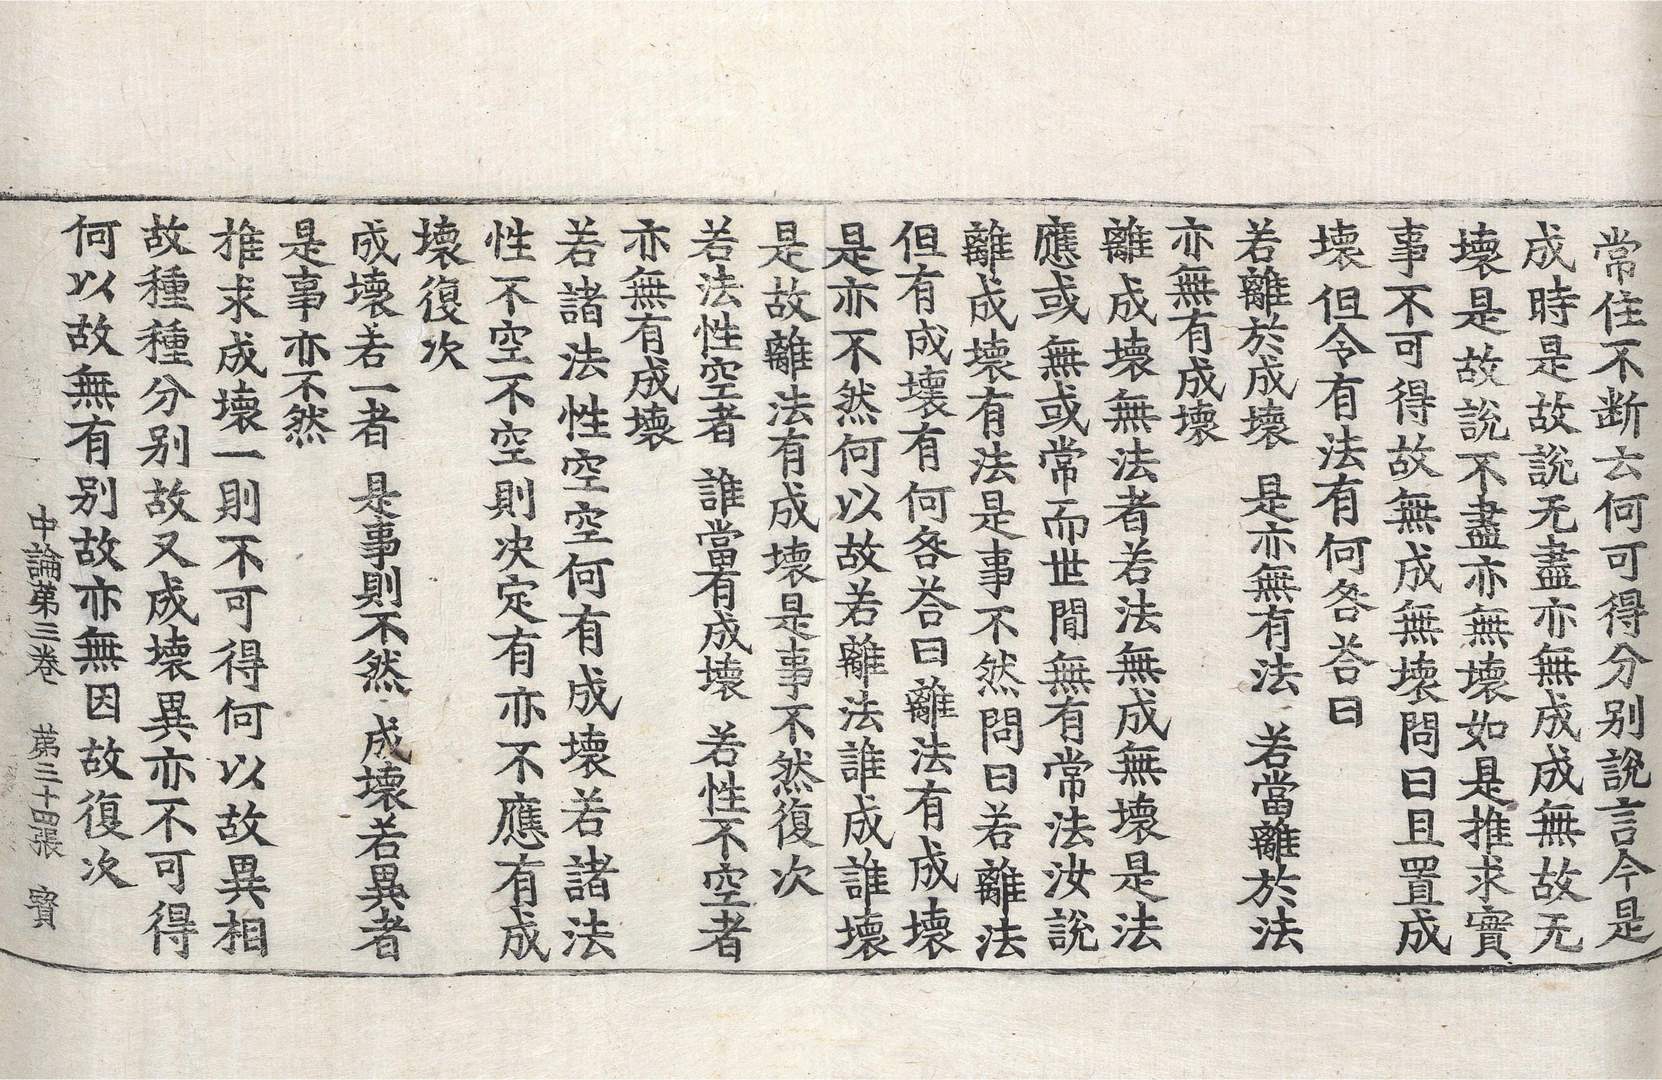 常住不断云何可得分别說言今是
成時是故說无盡亦無成成無故无
壞是故說不盡亦無壞如是推求實
事不可得故無成無壞問曰且置成
壞但令有法有何咎荅曰
若離於成壞 是亦無有法 若當離於法
亦無有成壞
離成壞無法者若法無成無壞是法
應或無或常而世間無有常法汝說
離成壞有法是事不然問曰若離法
但有成壞有何咎荅曰離法有成壞
是亦不然何以故若離法誰成誰壞
是故離法有成壞是事不然復次
若法性空者 誰當有成壞 若性不空者
亦無有成壞
若諸法性空空何有成壞若諸法
性不空不空則决定有亦不應有成
壞復次
成壞若一者 是事則不然 成壞若異者
是事亦不然
推求成壞一則不可得何以故異相
故種種分别故又成壞異亦不可得
何以故無有别故亦無因故復次
中論第三卷 第三十四張 賢